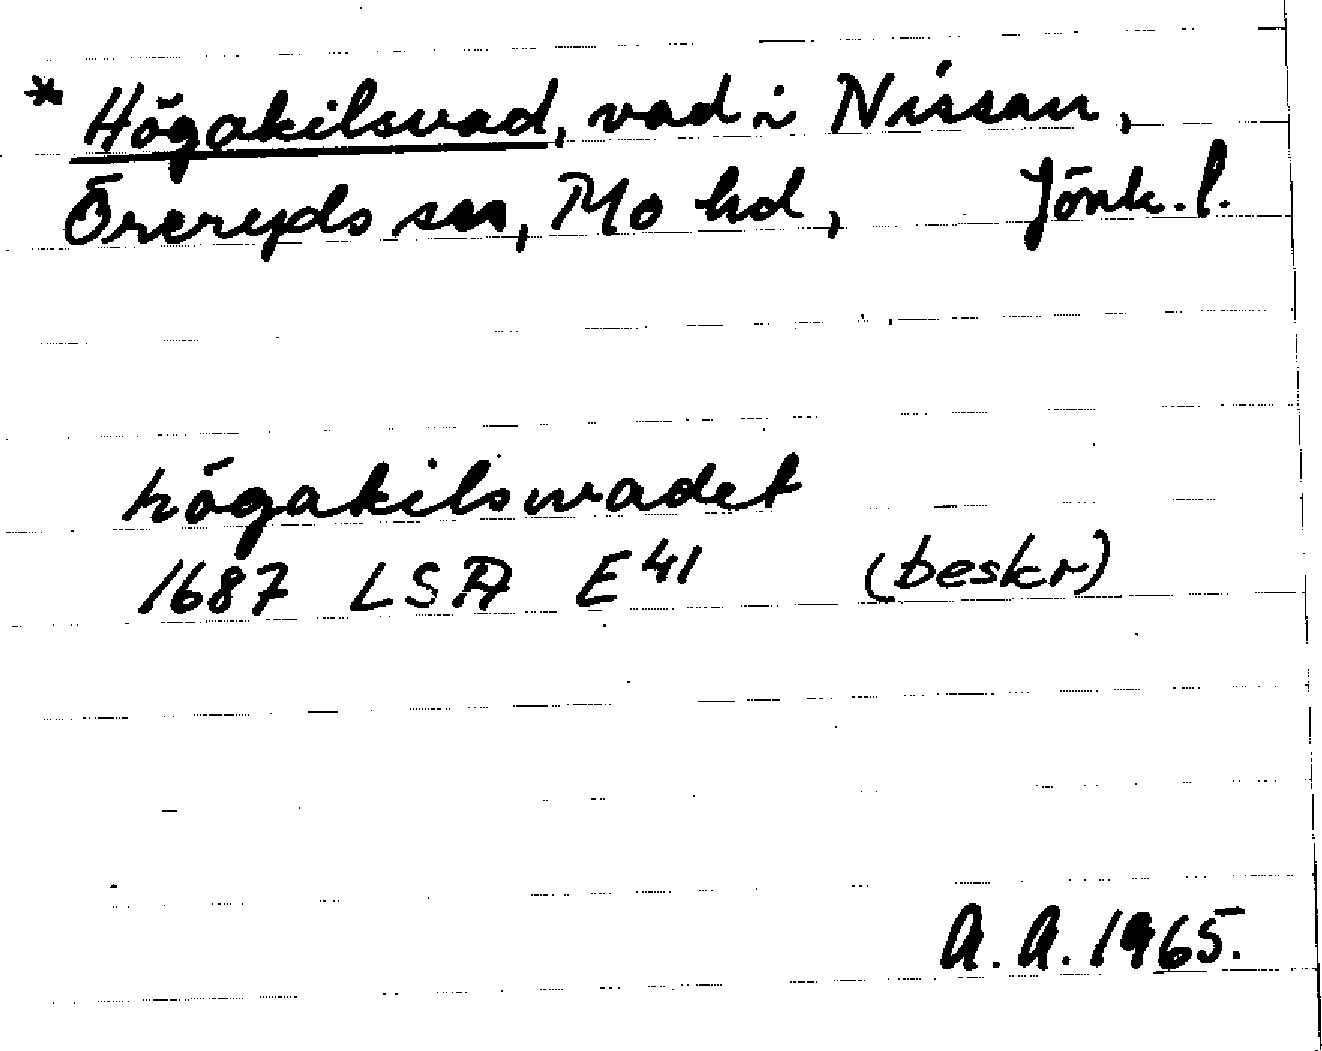 * Högakilsvad, vad i Nissan,
Öreryds sn, Mo hd, Jönk. l.
högakilswadet
1687 LSA E41 (beskr)
A.A. 1965.